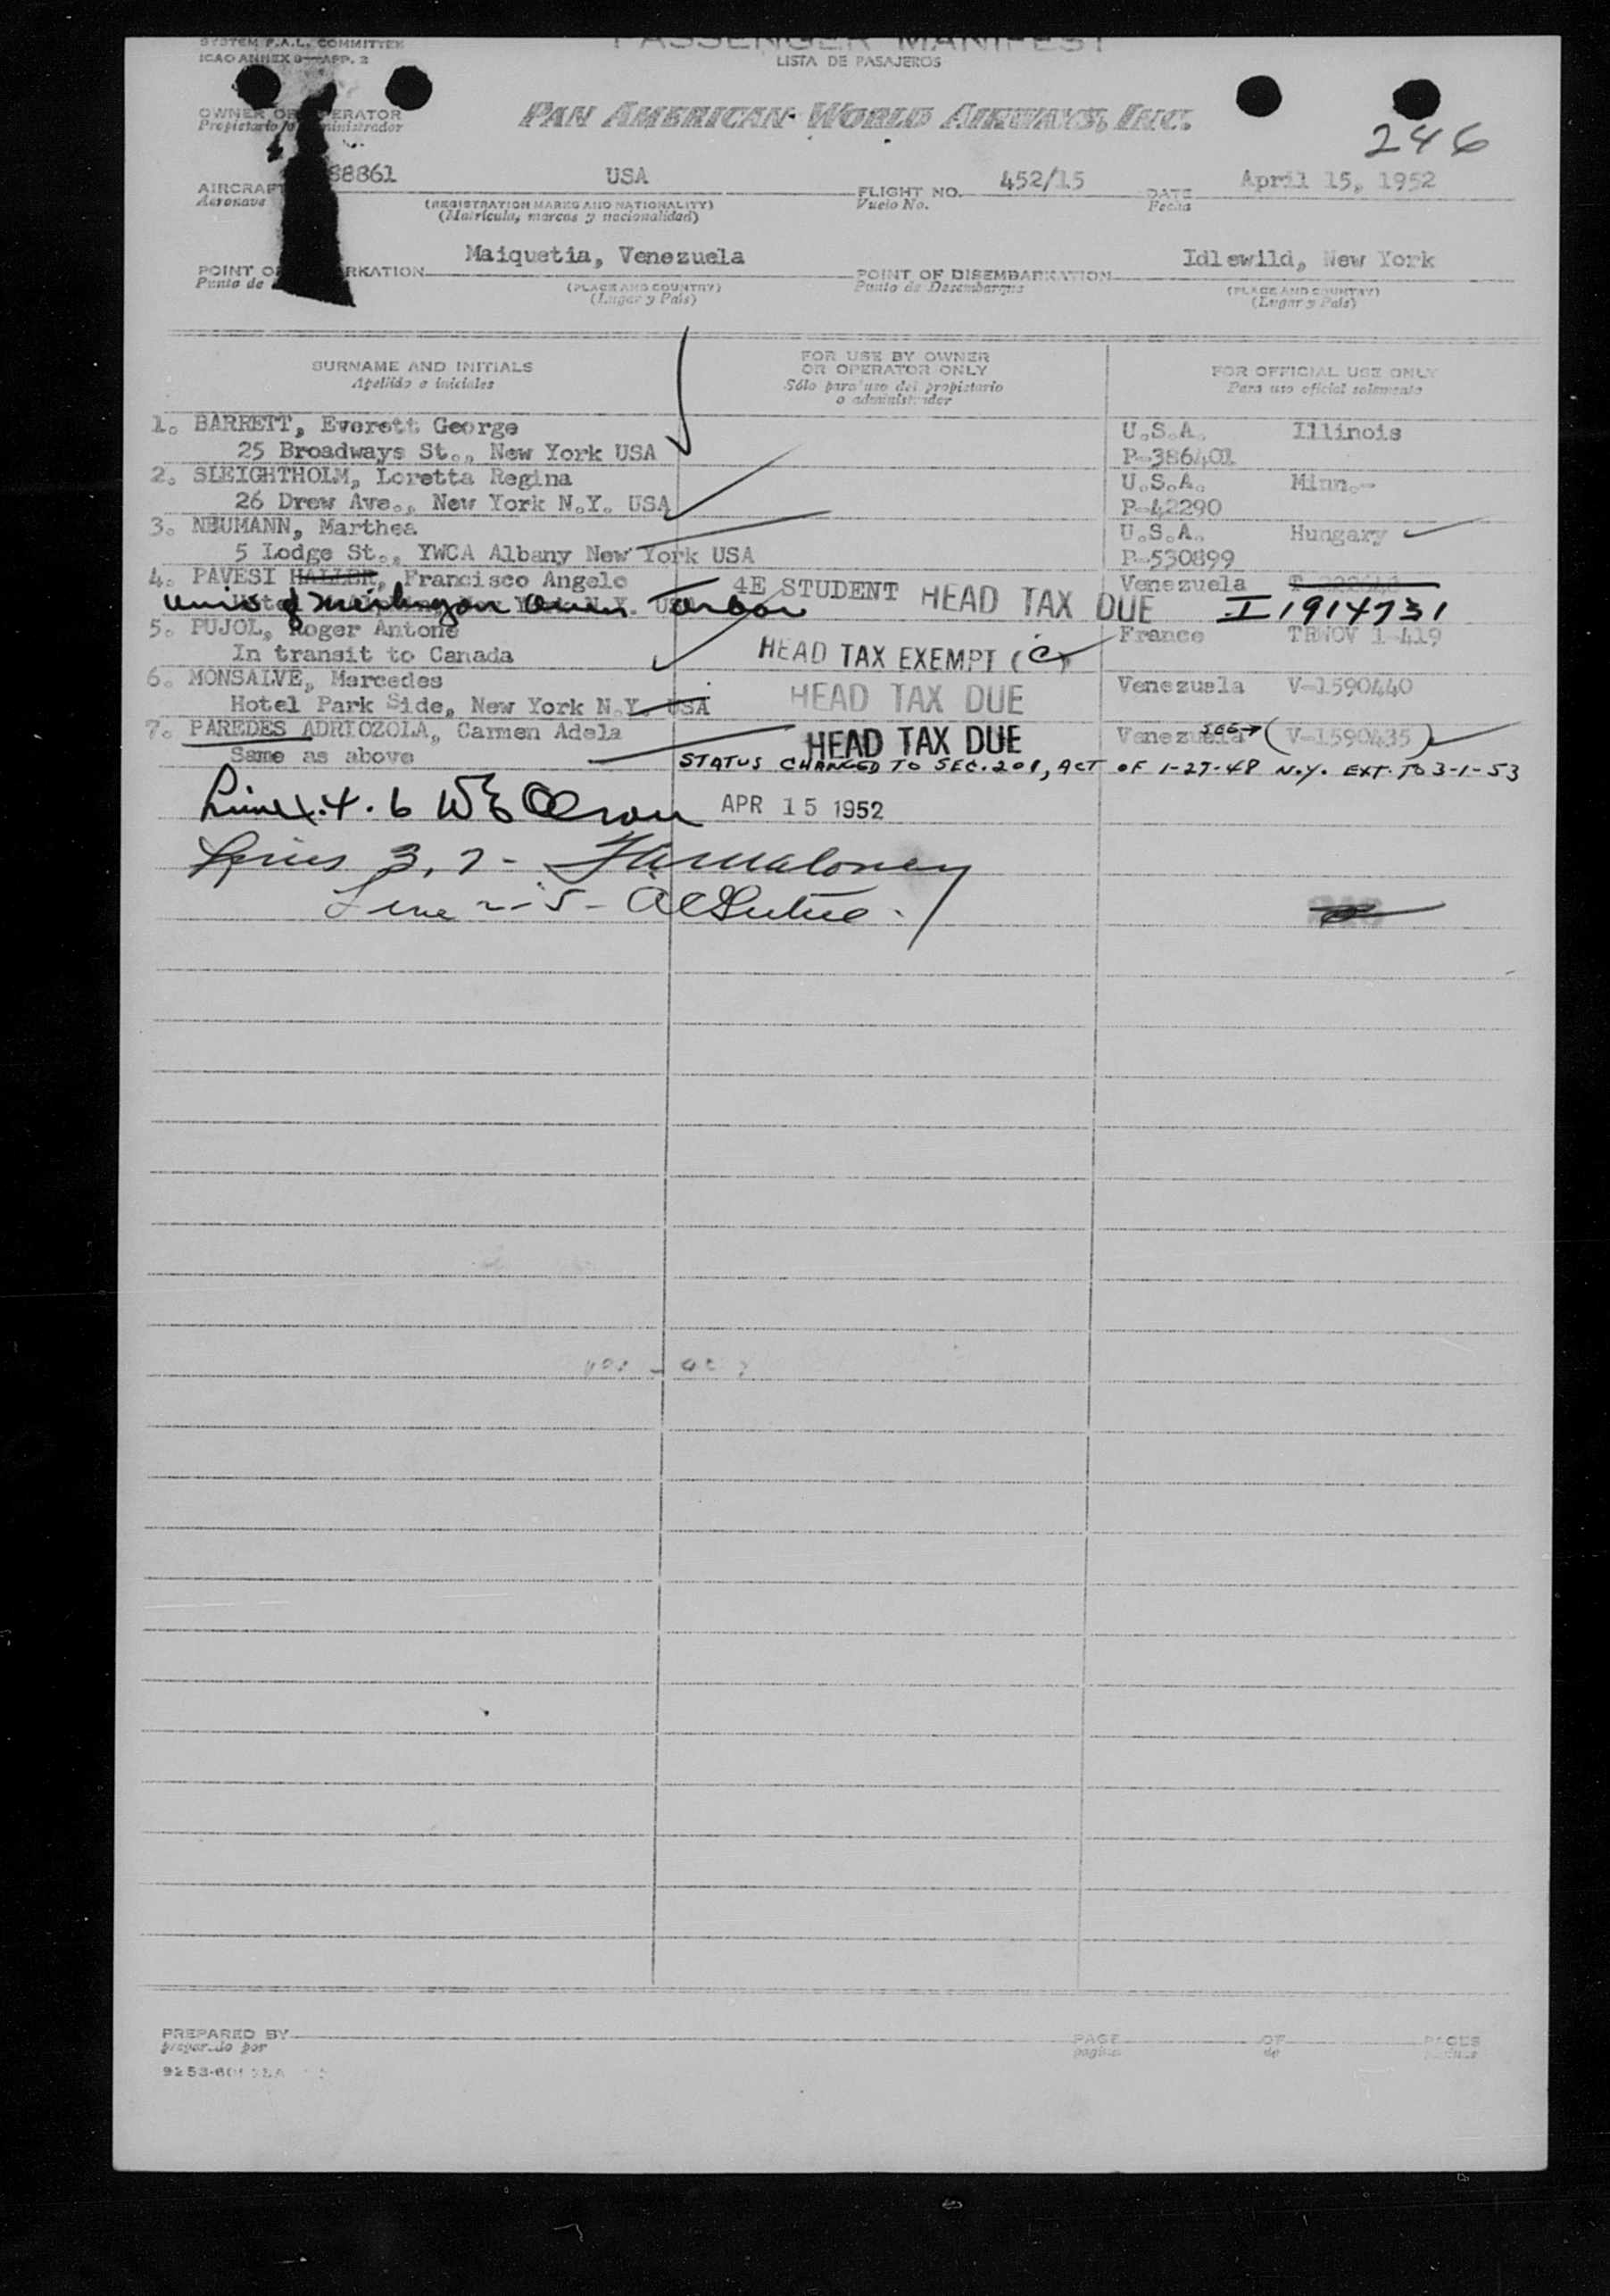 SYSTEM F.A.L. COMMITTEE
ICAO ANNEX 9—APP. 2
PASSENGER MANIFEST
LISTA DE PASAJEROS
OWNER OR OPERATOR
Propietario o administrador
PAN AMERICAN WORLD AIRWAYS, INC.
246
AIRCRAFT 88861 USA FLIGHT NO. 452/15 DATE April 15, 1952
Aeronave (REGISTRATION MARKS AND NATIONALITY) Vuelo No. Fecha
(Matrícula, marcas y nacionalidad)
POINT OF EMBARKATION Maiquetia, Venezuela POINT OF DISEMBARKATION Idlewild, New York
Punto de (PLACE AND COUNTRY) Punto de Desembarque (PLACE AND COUNTRY)
(Lugar y País) (Lugar y País)
SURNAME AND INITIALS FOR USE BY OWNER OR OPERATOR ONLY FOR OFFICIAL USE ONLY
Apellido e iniciales Sólo para uso del propietario o administrador Para uso oficial solamente
1. BARRETT, Everett George U.S.A. Illinois
25 Broadways St., New York USA P-386401
2. SLEIGHTHOLM, Loretta Regina U.S.A. Minn.-
26 Drew Ave., New York N.Y. USA P-42290
3. NEUMANN, Marthea U.S.A. Hungary
5 Lodge St., YWCA Albany New York USA P-530899
4. PAVESI HALLER, Francisco Angelo 4E STUDENT HEAD TAX DUE Venezuela
Univ of Michigan Arbor I 1914731
5. PUJOL, Roger Antone France TRNOV 1-419
In transit to Canada HEAD TAX EXEMPT (C)
6. MONSALVE, Mercedes HEAD TAX DUE Venezuela V-1590440
Hotel Park Side, New York N.Y. USA
7. PAREDES ADRIOZOLA, Carmen Adela HEAD TAX DUE Venezuela SEE→ (V-1590435)
Same as above STATUS CHANGED TO SEC. 201, ACT OF 1-27-48 N.Y. EXT. TO 3-1-53
Line 1.4.6 W E Olson APR 15 1952
Lines 3, 7 - Maloney
Line 2-5-
PREPARED BY PAGE OF PAGES
preparado por página de